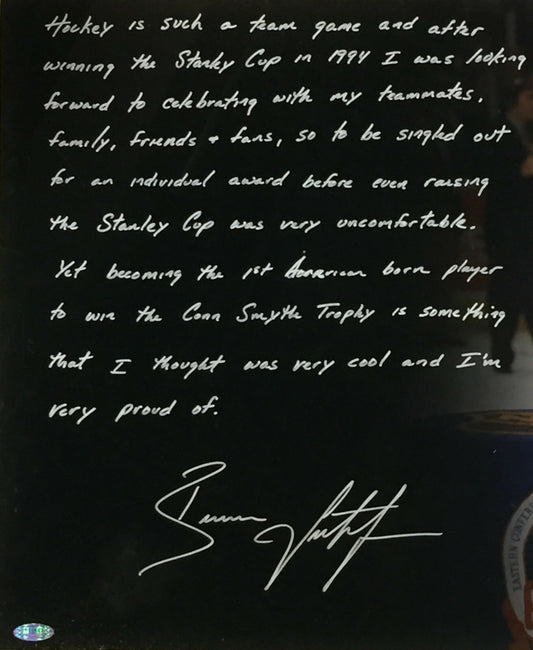 Hockey is such a team game and after
winning the Stanley Cup in 1994 I was looking
forward to celebrating with my teammates,
family, friends + fans, so to be singled out
for an individual award before even raising
the Stanley Cup was very uncomfortable.
Yet becoming the 1st American born player
to win the Conn Smythe Trophy is something
that I thought was very cool and I'm
very proud of.
Brian Leetch
EASTERN CONFER